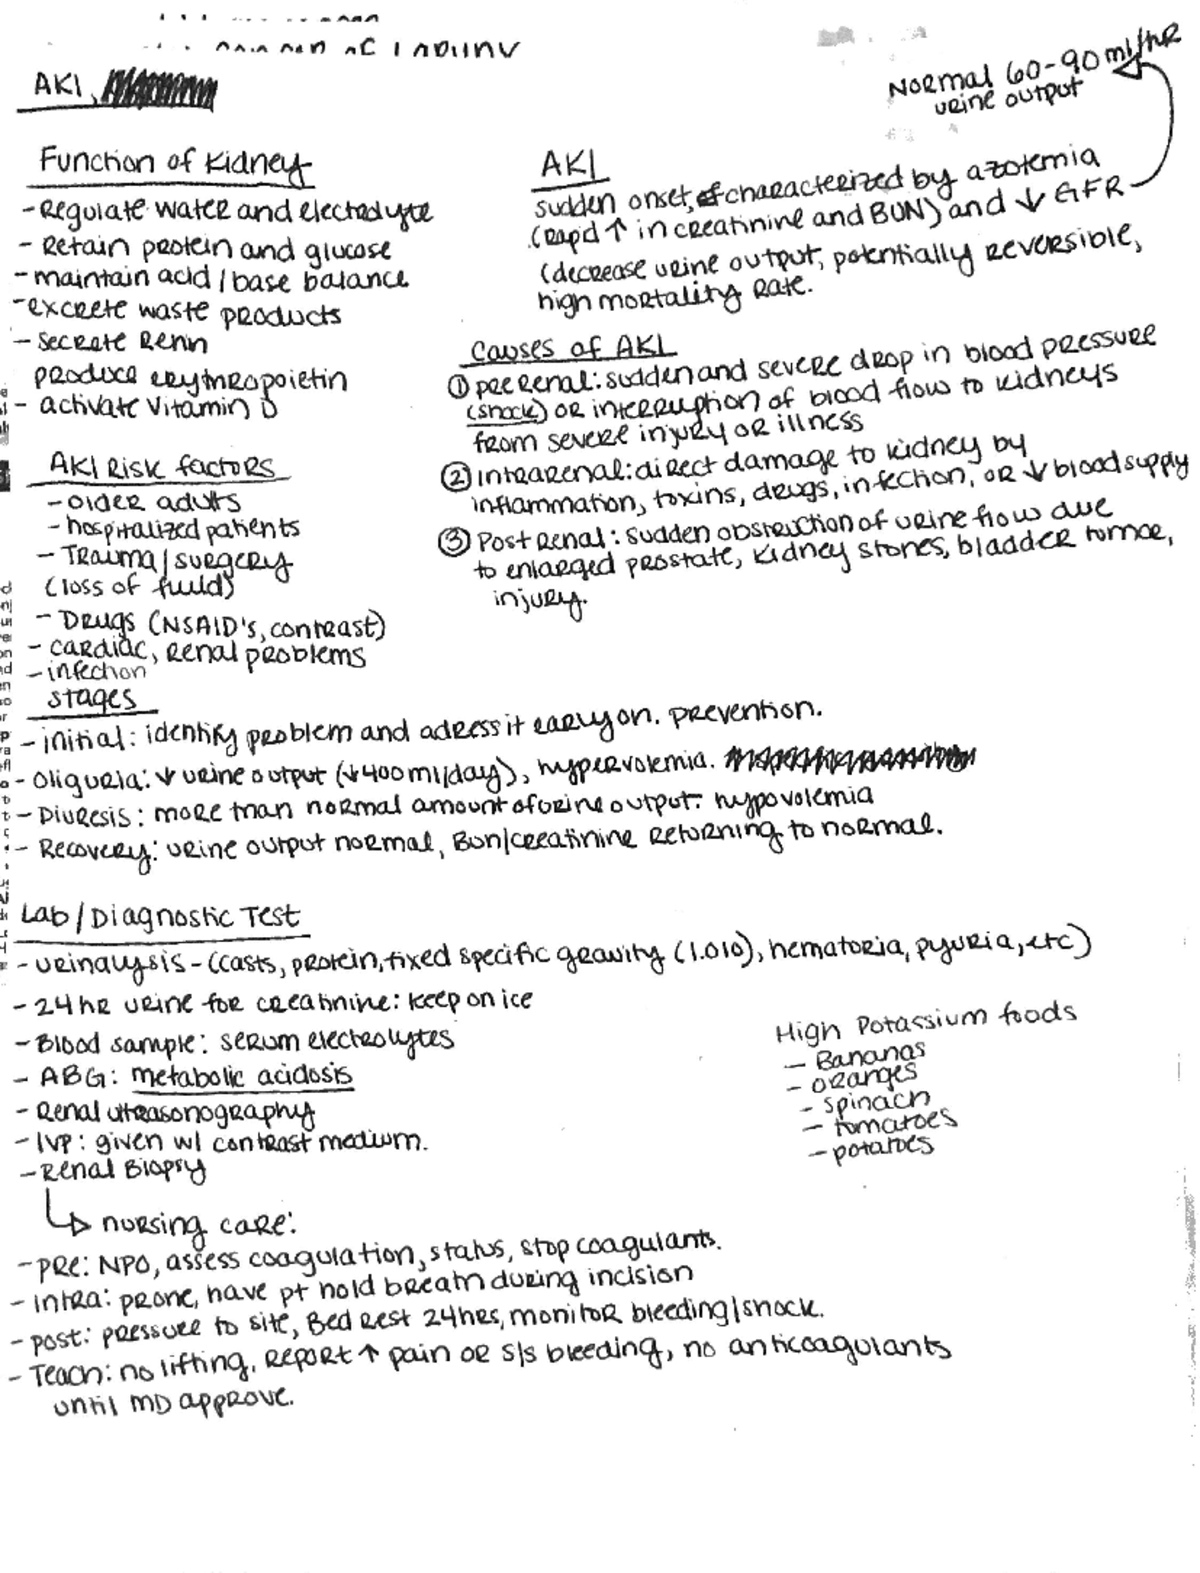 AKI,
Normal 60-90 ml/hr
urine output
Function of Kidney
- Regulate water and electrolyte
- Retain protein and glucose
- maintain acid/base balance
- excrete waste products
- secrete Renin
produce erythropoietin
- activate vitamin D
AKI Risk factors
- older adults
- hospitalized patients
- Trauma/surgery
(loss of fluid)
- Drugs (NSAID's, contrast)
- cardiac, renal problems
- infection
AKI
sudden onset, characterized by azotemia
(rapd ↑ in creatinine and BUN) and ↓ GFR
(decrease urine output, potentially reversible,
high mortality rate.
Causes of AKI
① prerenal: sudden and severe drop in blood pressure
(shock) or interruption of blood flow to kidneys
from severe injury or illness
② Intrarenal: direct damage to kidney by
inflammation, toxins, drugs, infection, or ↓ blood supply
③ Post renal: sudden obstruction of urine flow due
to enlarged prostate, kidney stones, bladder tumor,
injury.
stages
- initial: identify problem and adress it early on. prevention.
- oliguria: ↓ urine output (↓400ml/day), hypervolemia.
- Diuresis: more than normal amount of urine output. hypovolemia
- Recovery: urine output normal, Bun/creatinine returning to normal.
Lab/Diagnostic Test
- urinalysis - (casts, protein, fixed specific gravity (1.010), hematoria, pyuria, etc)
- 24 hr urine for creatinine: keep on ice
- Blood sample: serum electrolytes
- ABG: metabolic acidosis
- Renal ultrasonography
- IVP: given w/ contrast medium.
- Renal Biopsy
↳ nursing care:
- pre: NPO, assess coagulation, status, stop coagulants.
- intra: prone, have pt hold breath during incision
- post: pressure to site, Bed rest 24hrs, monitor bleeding/shock.
- Teach: no lifting, report ↑ pain or s/s bleeding, no anticoagulants
until MD approve.
High Potassium foods
- Bananas
- oranges
- spinach
- tomatoes
- potatoes